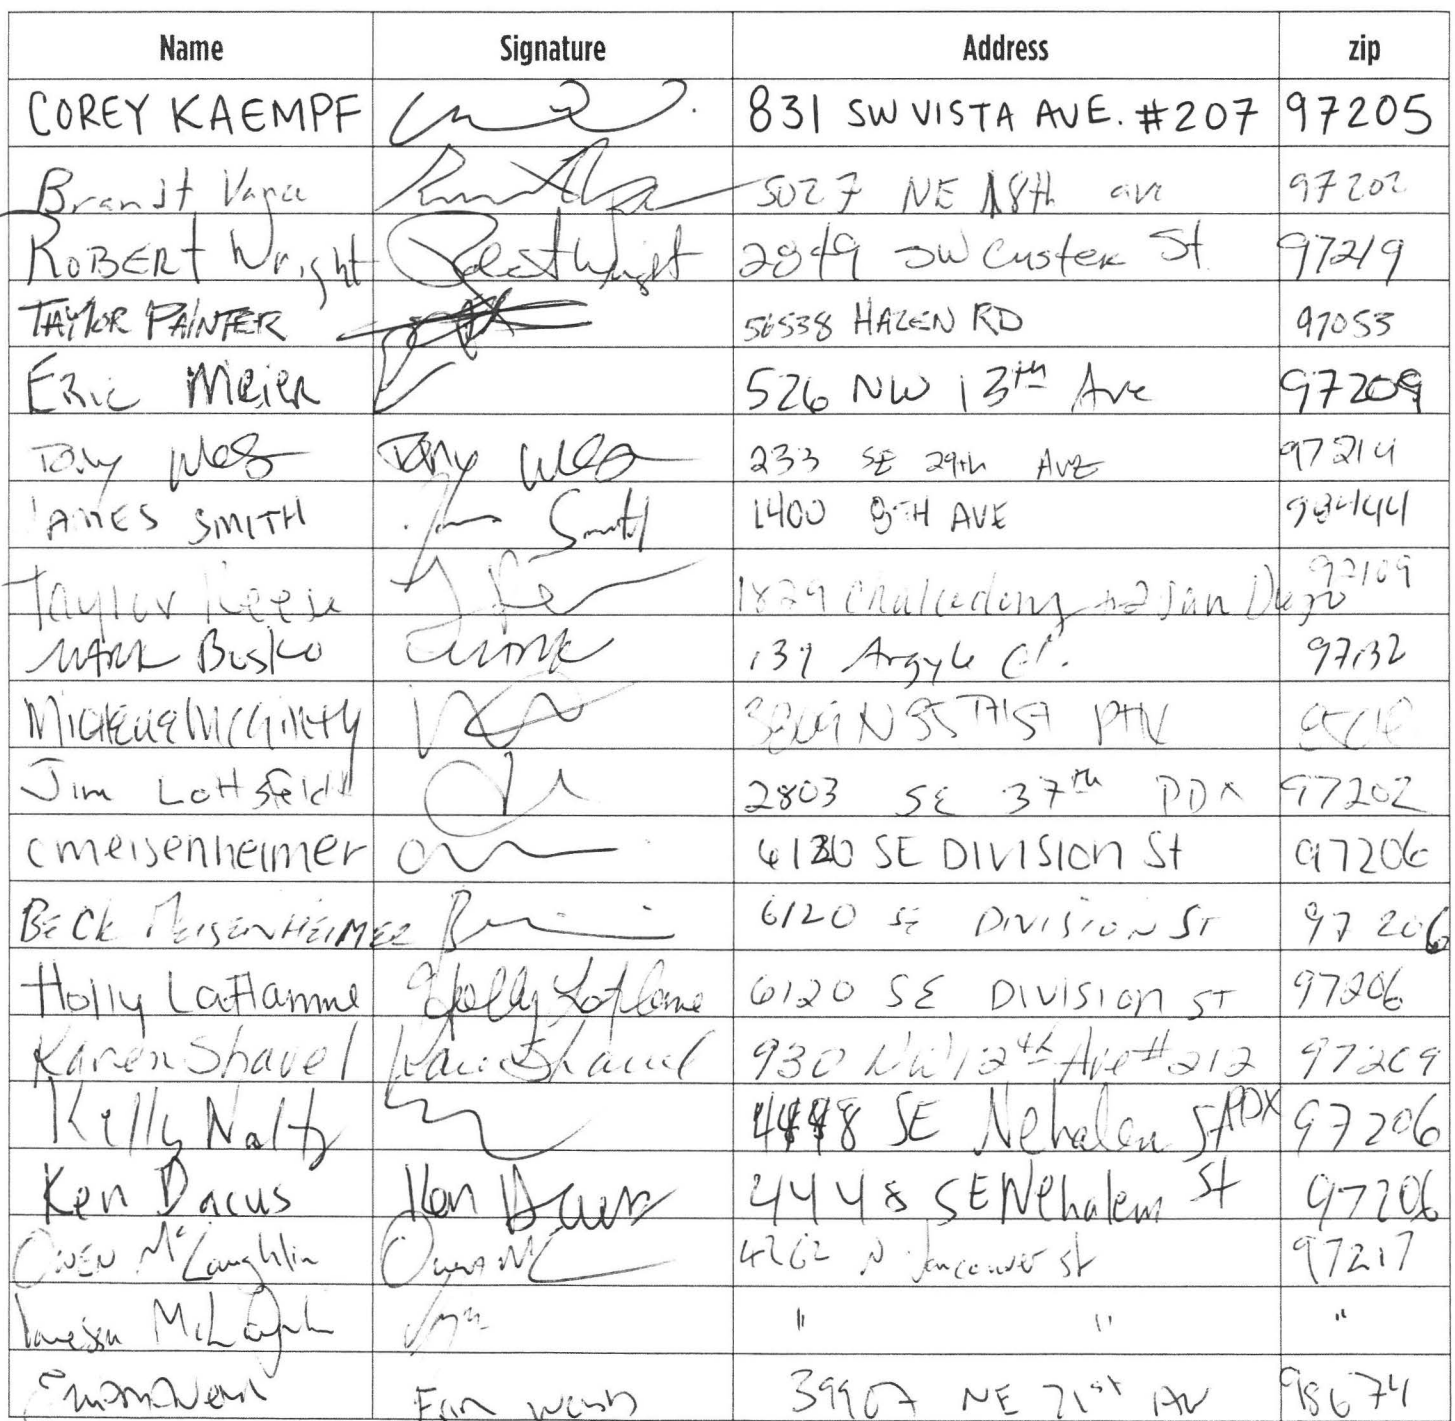 Name Signature Address zip
COREY KAEMPF 831 SW VISTA AVE. #207 97205
Brandt 5027 NE 18th ave 97202
ROBERT Wright Robert Wright 2849 SW Custer St. 97219
TAYLOR PAINTER 56538 HAZEN RD 97053
ERIC MEIER 526 NW 13th Ave 97209
Tony Tony 233 SE 29th AVE 97214
JAMES SMITH Smith 1400 8TH AVE
Taylor Reese 1829 Chalcedony #2 San Diego
MARK Busko Mark 139 Argyle Ct. 97132
McGinty N
Jim Lottsfeldt 2803 SE 37th PDX 97202
cmeisenheimer 6120 SE DIVISION St 97206
BECK MEISENHEIMER 6120 SE DIVISION ST 97206
Holly LaFlamme Holly LaFlamme 6120 SE DIVISION ST 97206
Karen Shavel Karen Shavel 930 NW 12th Ave #212 97209
Kelly Noltz 4448 SE Nehalem St PDX 97206
Ken Dacus Ken Dacus 4448 SE Nehalem St 97206
OWEN McLaughlin Owen Mc 4262 N Vancouver St 97217
" " "
NE 71st AV 98674